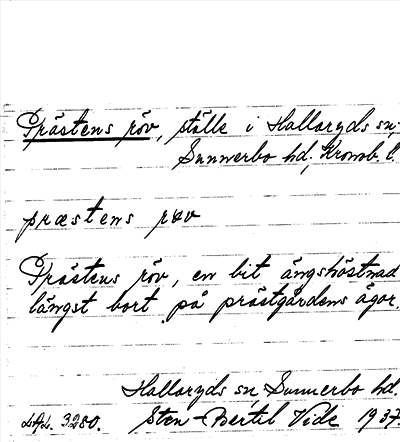 Prästens röv, ställe i Hallaryds sn,
Sunnerbo hd, Kronob. l.
præstens røv
Prästens röv, en bit ängshöstnad
längst bort på prästgårdens ägor.
Hallaryds sn Sunnerbo hd.
LAL. 3280. Sten-Bertil Vide 1937.